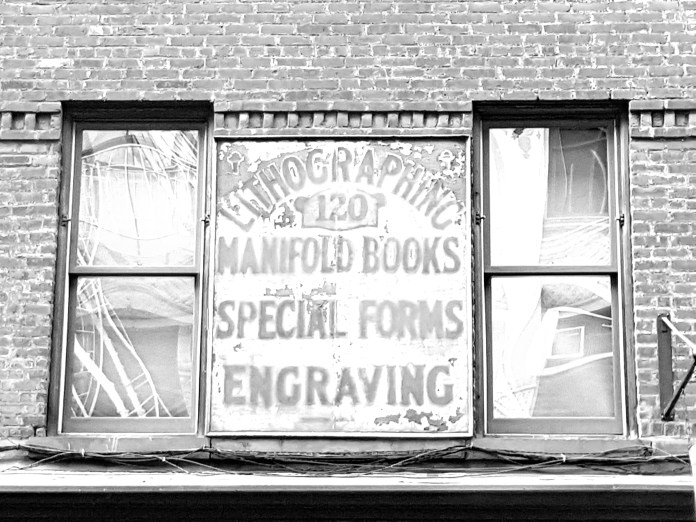 LITHOGRAPHING
120
MANIFOLD BOOKS
SPECIAL FORMS
ENGRAVING